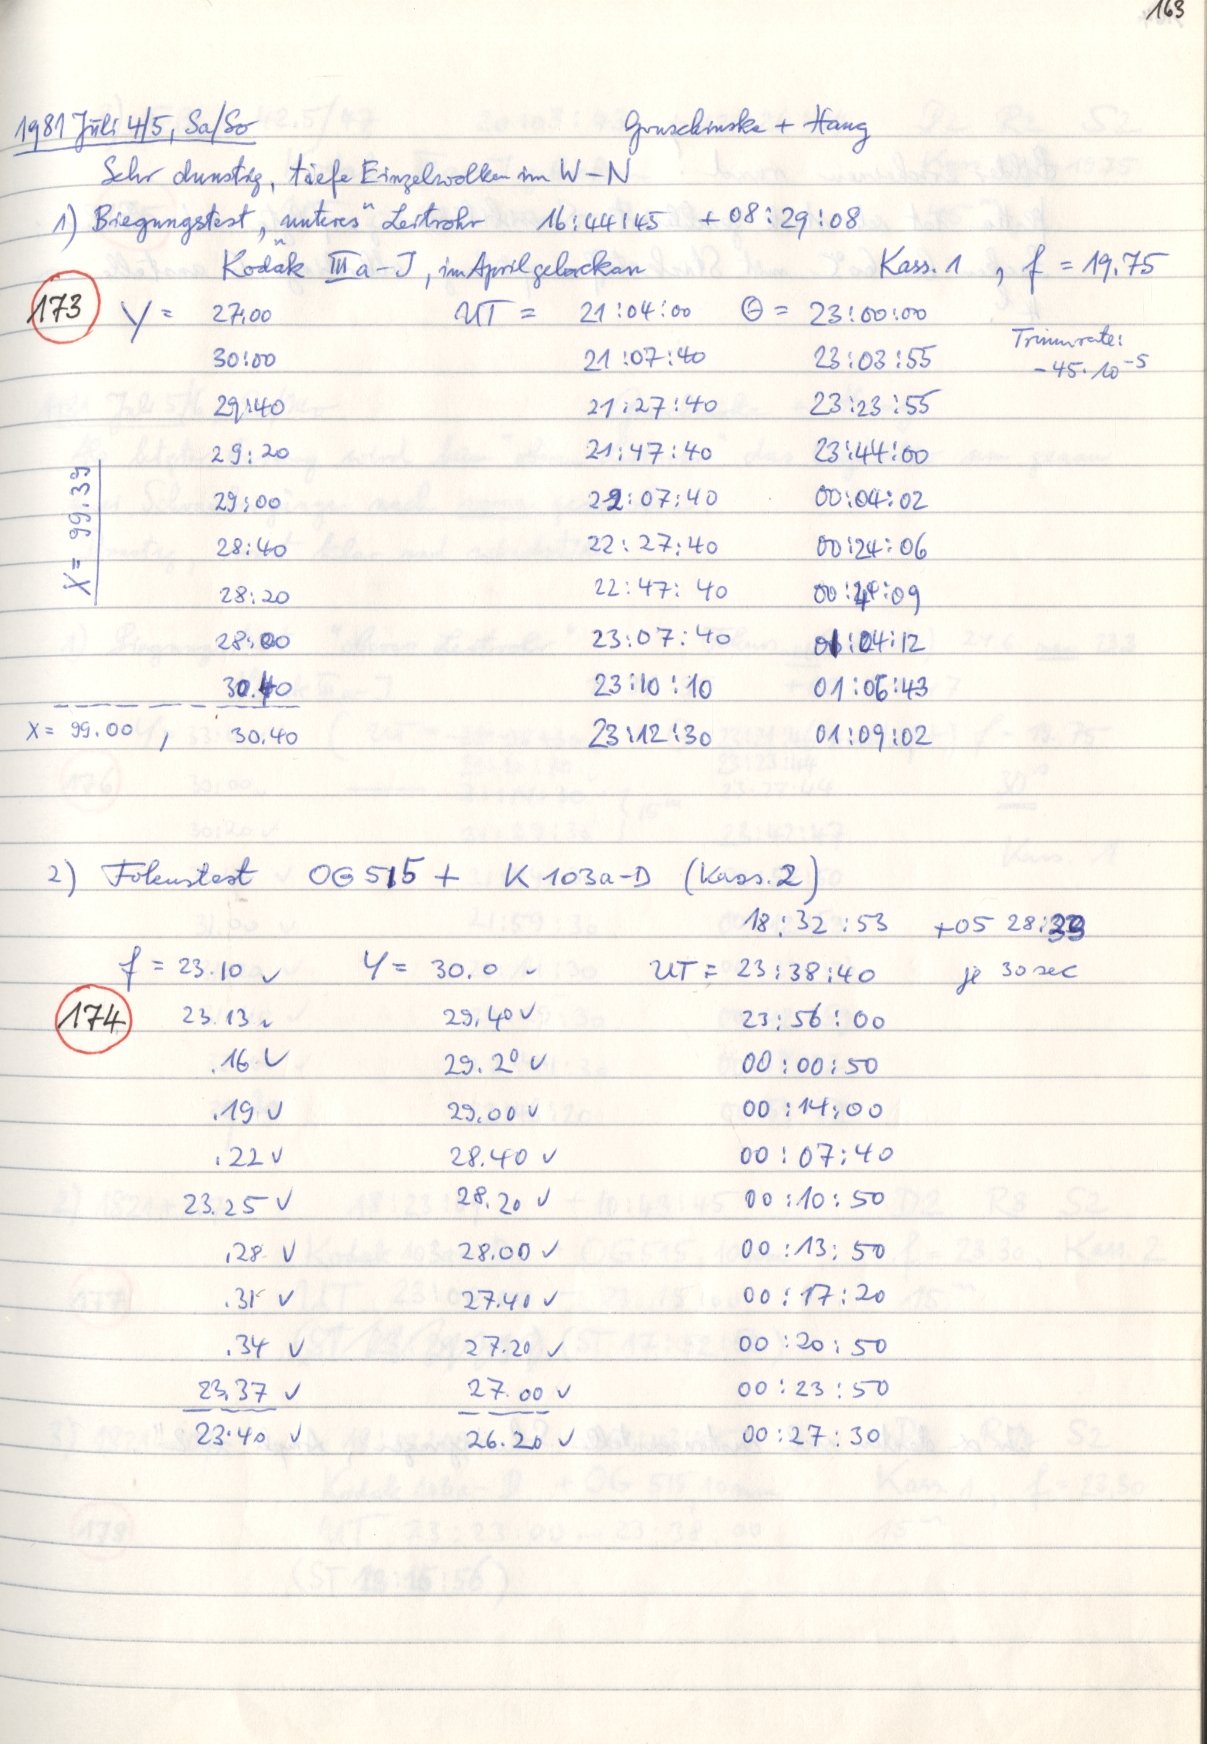 163
1981 Juli 4/5, Sa/So Gruschinske + Haug
Sehr dunstig, tiefe Einzelwolken im W-N
1) Biegungstest, "unteres" Leitrohr 16:44:45 +08:29:08
Kodak IIIa-J, im April gebacken Kass. 1, f = 19.75
173 Y = 27.00 UT = 21:04:00 Θ = 23:00:00
Trimmrate:
30:00 21:07:40 23:03:55
-45·10⁻⁵
29:40 21:27:40 23:23:55
29:20 21:47:40 23:44:00
X = 99.39
29:00 22:07:40 00:04:02
28:40 22:27:40 00:24:06
28:20 22:47:40 00:44:09
28:00 23:07:40 01:04:12
30.40 23:10:10 01:06:43
X = 99.00, 30.40 23:12:30 01:09:02
2) Fokustest OG515 + K 103a-D (Kass. 2)
18:32:53 +05 28:33
f = 23.10 ✓ Y = 30.0 ✓ UT = 23:38:40 je 30 sec
174 23.13 ✓ 29.40 ✓ 23:56:00
.16 ✓ 29.20 ✓ 00:00:50
.19 ✓ 29.00 ✓ 00:14:00
.22 ✓ 28.40 ✓ 00:07:40
23.25 ✓ 28.20 ✓ 00:10:50
.28 ✓ 28.00 ✓ 00:13:50
.31 ✓ 27.40 ✓ 00:17:20
.34 ✓ 27.20 ✓ 00:20:50
23.37 ✓ 27.00 ✓ 00:23:50
23.40 ✓ 26.20 ✓ 00:27:30